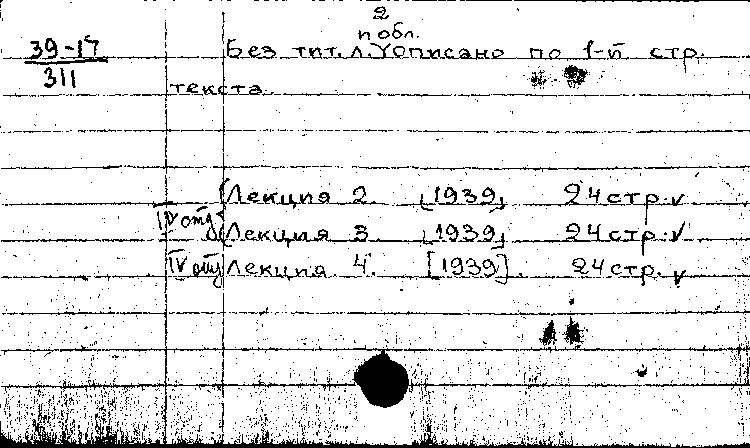 2
п обл.
39-17 Без тит. л. описано по 1-й стр.
311
текста.
Лекция 2. [1939] 24 стр. v
IV отд Лекция 3 [1939] 24 стр. v
IV отд Лекция 4. [1939]. 24 стр. v